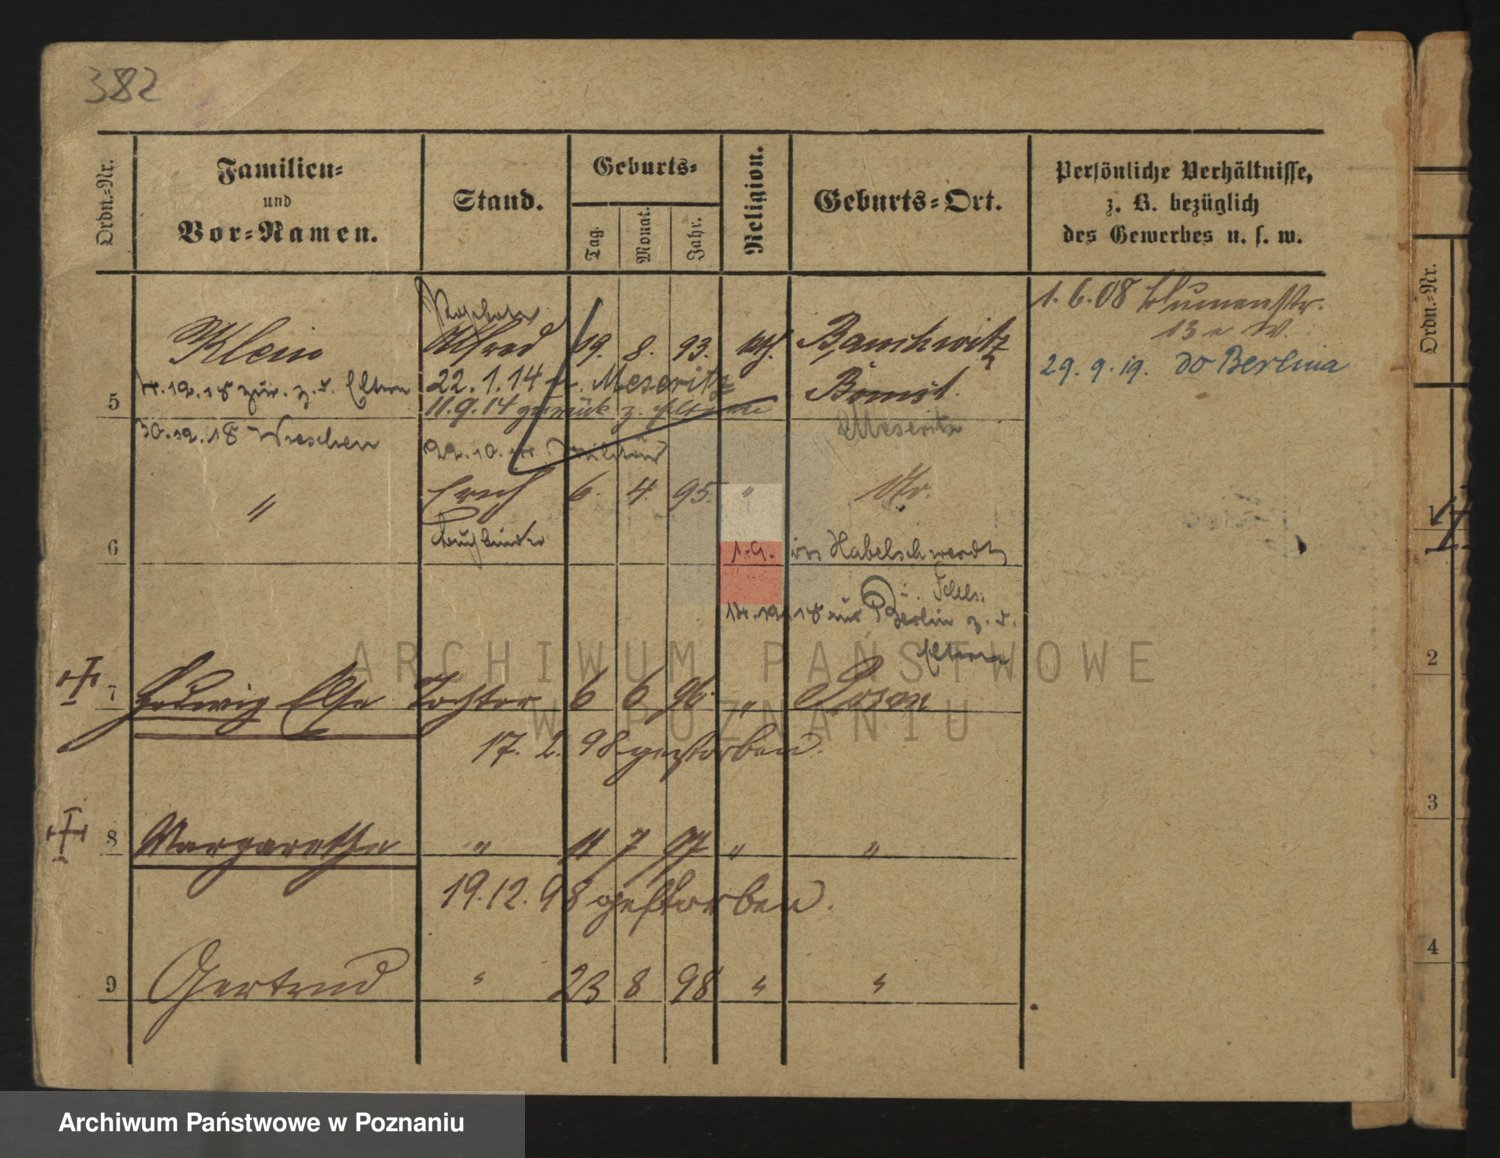 382
Ordn.-Nr.
Familien-
und
Vor-Namen.
Stand.
Geburts-
Tag.
Monat.
Jahr.
Religion.
Geburts-Ort.
Persönliche Verhältnisse,
z. B. bezüglich
des Gewerbes u. s. w.
1. 6. 08 Blumenstr.
13 a W.
29. 9. 19. do Berlina
5 Klein Alfred 19. 8. 93.
Bomst.
22. 1. 14 n. Meseritz
11. 9. 14 zurück z. Eltern
zur. z. d. Eltern
Meseritz
30.12.18 Wreschen
22.10. Militär
6 " Erich 6. 4. 95. "
Buchbinder
1.9. in Habelschwerdt
i. Schls.
14.12.18 aus Berlin z. d.
Eltern
7 Hedwig Else Tochter 6 6 96. " Posen
17. 2. 98 gestorben.
8 Margarethe " 11 7 97 " "
19. 12. 98 gestorben.
9 Gertrud " 23 8 98 " "
Ordn.-Nr.
1
2
3
4
ARCHIWUM PAŃSTWOWE
W POZNANIU
Archiwum Państwowe w Poznaniu